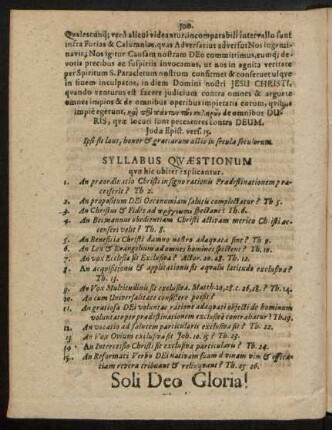 500.
Qualescunq; verò alicui videantur, incomparabili intervallo sunt
infra Furias & Calumnias, quas Adversarius adversus Nos ingemi-
navit; Nos igitur Causam nostram DEo committimus, eumq; de-
votis precibus ac suspiriis invocamus, ut nos in agnita veritate
per Spiritum S. Paracletum nostrum confirmet & conservet usq; re
in finem inculpatos, in diem Domini nostri JESU CHRISTI,
quando venturus est facere judicium contra omnes & arguere
omnes impios & de omnibus operibus impietatis eorum, quibus
impiè egerunt, καὶ de omnibus DU-
RIS, quæ locuti sunt peccatores contra DEUM.
Judæ Epist. vers. 15.
Ipsi sit laus, honor & gratiarum actio in secula seculorum.
SYLLABUS QVÆSTIONUM
quæ hic obiter explicantur.
1. An præordinatio Christi in signo rationis Prædestinationem præ-
cesserit? Th. 2.
2. An propositum DEi Oeconomiam salutis complectatur? Th. 5
3. An Christus & Fides ad spectent? Th. 6.
4. An Bezanus obedientiam Christi activam merito Christi ac-
censeri velit? Th. 8
5. An Beneficia Christi damno nostro adæquata sint? Th. 9
6. An Lex & Evangelium ad omnes homines spectent? Th. 10.
7. An vox Ecclesia sit Exclusiva? Actor. 20. 28. Th. 12.
8. An acquisitionis & applicationis sit æqualis latitudo exclusiva?
Th. 13.
9. An Vox Multitudinis sit exclusiva. Matth. 20, 28. c. 26, 28? Th. 24.
10. An cum Universalitate consistere possit?
11. An gratiosa DEi voluntas ratione adæquati objecti de hominum
voluntate per prædestinationem exclusivè contrahatur? Th. 19.
12. An vocatio ad salutem particularis exclusiva sit? Th. 22.
13. An Vox Ovium exclusiva sit Joh. 10. 15? Th. 23.
14. An Intercessio Christi sit exclusiva particularis? Th. 24.
15. An Reformati Verbo DEi nativam suam divinam vim & effica-
tiam revera tribuant & relinquant? Th. 25. 26.
Soli Deo Gloria!